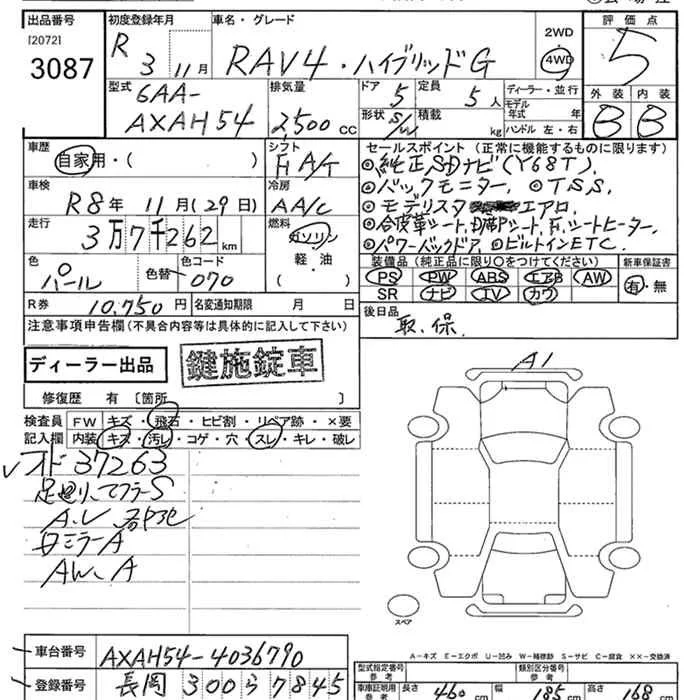 出品番号 初度登録年月 車名・グレード 2WD 評価点
[2072] R 3年 11月 RAV4・ハイブリッドG 4WD 5
3087
型式 排気量 ドア 定員 ディーラー・並行 外装 内装
6AA- 5 5人 モデル年式 年 B B
AXAH54 2,500cc 形状 S/W 積載 kg ハンドル 左・右
車歴 シフト セールスポイント (正常に機能するものに限ります)
自家用・( ) F A/T ◎純正SDナビ(Y68T).
車検 冷房 ◎バックモニター. ◎TSS.
R8年 11月(29日) AA/C ◎モデリスタ エアロ
走行 燃料 ◎合皮革シート, 助席Pシート, F.シートヒーター.
3万7千262km ガソリン ◎パワーバックドア. ◎ビルトインETC.
色 色替 色コード 軽・油 装備品(純正品に限り○をつけてください) 新車保証書
パール 070 ( ) PS PW ABS エアB AW 有・無
SR ナビ TV カワ
R券 10,750円 名変通知期限 月 日 後日品
注意事項申告欄(不具合内容等は具体的に記入して下さい) 取、保.
ディーラー出品 鍵施錠車
修復歴 有 〔箇所 〕 A1
検査員 FW キズ・飛石・ヒビ割・リペア跡・×要
記入欄 内装 キズ・汚レ・コゲ・穴・スレ・キレ・破レ
オド 37263
足廻り、マフラーS
A.U
ミラーA
AW、A
スペア
A-キズ E-エクボ U-凹み W-補修跡 S-サビ C-腐食 ××-交換済
車台番号 AXAH54-4036790 型式指定番号 参考 類別区分番号 参考
登録番号 長岡 300 ら 7845 車庫証明用 参考 長さ 460cm 幅 185cm 高さ 168cm